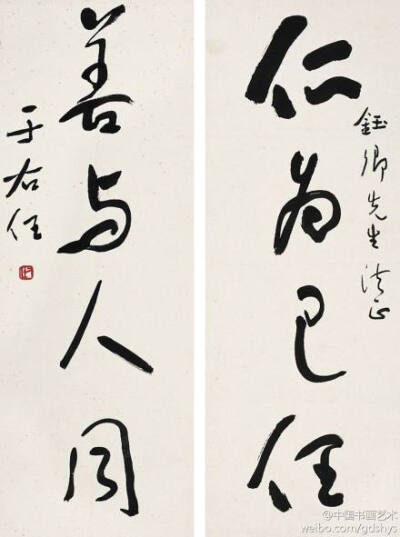 鈺卿先生法正
仁为己任
善与人同
于右任
@中国书画艺术
weibo.com/gdshys